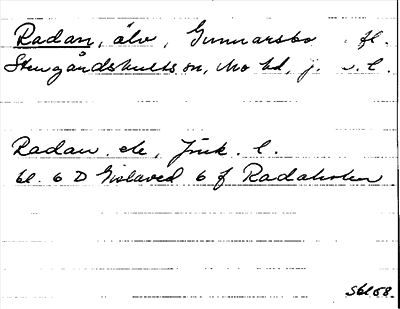 Radan, älv, Gunnarsbo fl.
Stengårdshults sn, Mo hd, J. l.
Radan, ek, Jönk. l.
bl. 6 D Gislaved 6 f Radaholm
SGl 58.